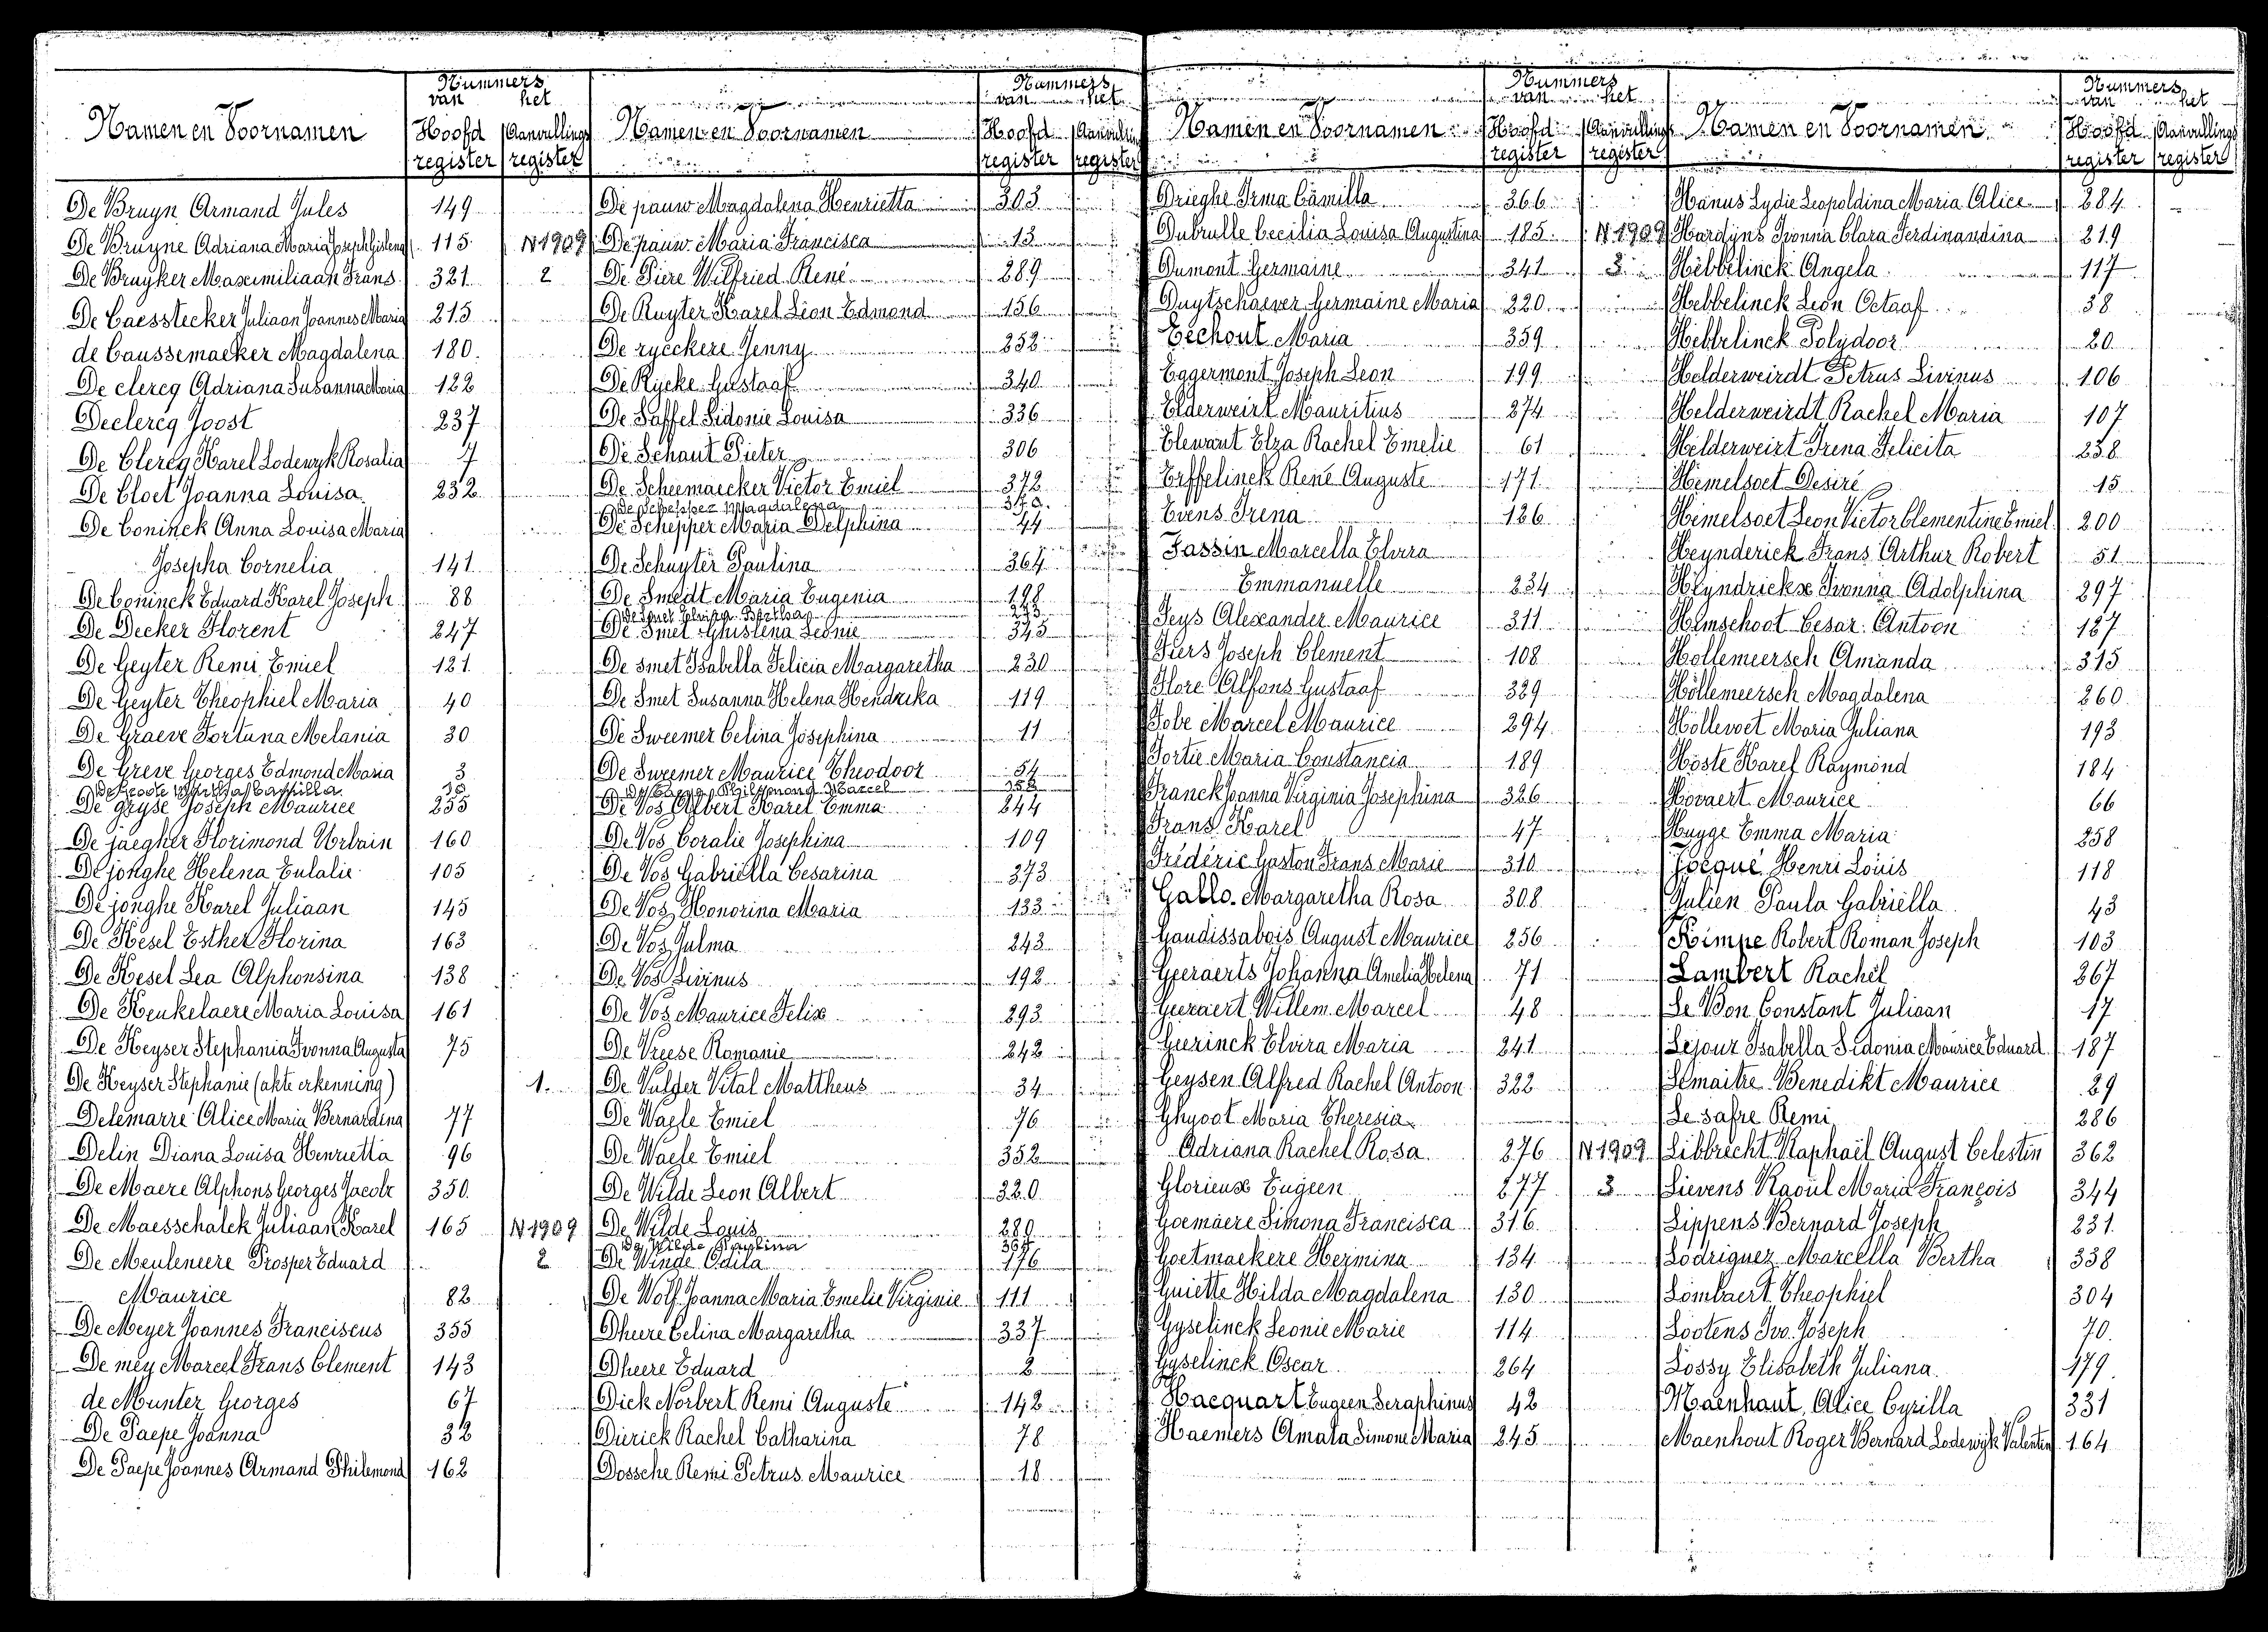 Namen en Voornamen Nummers van het Hoofd register Aanvullings register
De Bruyn Armand Jules 149
De Bruyne Adriana Maria Joseph Gislena 115 N 1909
De Bruyker Maximiliaan Frans 321 2
De Caesstecker Juliaan Joannes Maria 215
de Caussemaeker Magdalena 180
De clercq Adriana Susanna Maria 122
Declercq Joost 237
De Clercq Karel Lodewyk Rosalia 7
De Cloet Joanna Louisa 232
De Coninck Anna Louisa Maria
Josepha Cornelia 141
De Coninck Eduard Karel Joseph 88
De Decker Florent 247
De Geyter Remi Emiel 121
De Geyter Theophiel Maria 40
De Graeve Fortuna Melania 30
De Greve Georges Edmond Maria 3
De Groote Camilla
De Gryse Joseph Maurice 255
De jaegher Florimond Urbain 160
De jonghe Helena Eulalie 105
De jonghe Karel Juliaan 145
De Kesel Esther Florina 163
De Kesel Lea Alphonsina 138
De Keukelaere Maria Louisa 161
De Keyser Stephania Ivonna Augusta 75
De Keyser Stephanie (akte erkenning) 1.
Delemarre Alice Maria Bernardina 77
Delin Diana Louisa Henrietta 96
De Maere Alphons Georges Jacob 350
De Maesschalck Juliaan Karel 165 N 1909
De Meulenere Prosper Eduard 2
Maurice 82
De Meyer Joannes Franciscus 355
De mey Marcel Frans Clement 143
de Munter Georges 67
De Paepe Joanna 32
De Paepe Joannes Armand Philemond 162
Namen en Voornamen Nummers van het Hoofd register Aanvulling register
De pauw Magdalena Henrietta 303
De pauw Maria Francisca 13
De Piere Wilfried René 289
De Ruyter Karel Léon Edmond 156
De ryeckere Jenny 252
De Rycke Gustaaf 340
De Saffel Sidonie Louisa 336
De Schaut Pieter 306
De Scheemaecker Victor Emiel 372
De Schepper Magdalena
De Schepper Maria Delphina 44
De Schuyter Paulina 364
De Smedt Maria Eugenia 198
De Smet Elvira Bertha
De Smet Ghislena Leonie 345
De smet Isabella Felicia Margaretha 230
De Smet Susanna Helena Hendrika 119
De Sweemer Celina Josephina 11
De Sweemer Maurice Theodoor 54
Marcel 358
De Vos Albert Karel Emma 244
De Vos Coralie Josephina 109
De Vos Gabriella Cesarina 273
De Vos Honorina Maria 133
De Vos Julma 243
De Vos Livinus 192
De Vos Maurice Felix 293
De Vreese Romanie 242
De Vulder Vital Mattheus 34
De Waele Emiel 76
De Waele Emiel 352
De Wilde Leon Albert 320
De Wilde Louis 280
De Wilde Paulina 367
De Winde Odila 176
De Wolf Joanna Maria Emelie Virginie 111
Dheere Celina Margaretha 337
Dheere Eduard 2
Dick Norbert Remi Auguste 142
Dierick Rachel Catharina 78
Dossche Remi Petrus Maurice 18
Namen en Voornamen Nummers van het Hoofd register Aanvullings register
Drieghe Irma Camilla 366
Dubrulle Cecilia Louisa Augustina 185 N 1909
Dumont Germaine 341 3
Duytschaever Germaine Maria 220
Eechout Maria 359
Eggermont Joseph Leon 199
Elderweirt Mauritius 274
Elewaut Elza Rachel Emelie 61
Erffelinck René Auguste 171
Evens Irena 126
Fassin Marcella Elvira
Emmanuelle 234
Feys Alexander Maurice 311
Fiers Joseph Clement 108
Flore Alfons Gustaaf 329
Fobe Marcel Maurice 294
Fortie Maria Constancia 189
Franck Joanna Virginia Josephina 326
Frans Karel 47
Fréderic Gaston Frans Marie 310
Gallo Margaretha Rosa 308
Gaudissabois August Maurice 256
Geeraerts Johanna Amelia Helena 71
Geeraert Willem Marcel 48
Geerinck Elvira Maria 241
Geysen Alfred Rachel Antoon 322
Ghyoot Maria Theresia
Adriana Rachel Rosa 276 N 1909
Glorieux Eugeen 277 3
Goemaere Simona Francisca 316
Goetmaekere Hermina 134
Guiette Hilda Magdalena 130
Gyselinck Leonie Marie 114
Gyselinck Oscar 264
Hacquart Eugeen Seraphinus 42
Haemers Amata Simone Maria 245
Namen en Voornamen Nummers van het Hoofd register Aanvullings register
Hanus Lydie Leopoldina Maria Alice 284
Hardyns Ivonna Clara Ferdinandina 219
Hebbelinck Angela 117
Hebbelinck Leon Octaaf 38
Hebbelinck Polydoor 20
Helderweirdt Petrus Livinus 106
Helderweirdt Rachel Maria 107
Helderweirt Irena Felicita 238
Hemelsoet Desiré 15
Hemelsoet Leon Victor Clementine Emiel 200
Heynderick Frans Arthur Robert 51
Heyndrickx Ivonna Adolphina 297
Hemschoot Cesar Antoon 127
Hollemeersch Amanda 315
Hollemeersch Magdalena 260
Hollevoet Maria Juliana 193
Hoste Karel Raymond 184
Hovaert Maurice 66
Huyge Emma Maria 258
Jocqué Henri Louis 118
Julien Paula Gabriella 43
Kimpe Robert Roman Joseph 103
Lambert Rachel 267
Le Bon Constant Juliaan 17
Lejour Isabella Sidonia Maurice Eduard 187
Lemaitre Benedikt Maurice 29
Le safre Remi 286
Libbrecht Raphaël August Celestin 362
Lievens Raoul Maria François 344
Lippens Bernard Joseph 231
Lodriguez Marcella Bertha 338
Lombaert Theophiel 304
Lootens Ivo Joseph 70
Lossy Elisabeth Juliana 179
Maenhaut Alice Cyrilla 331
Maenhout Roger Bernard Lodewyk Valentin 164